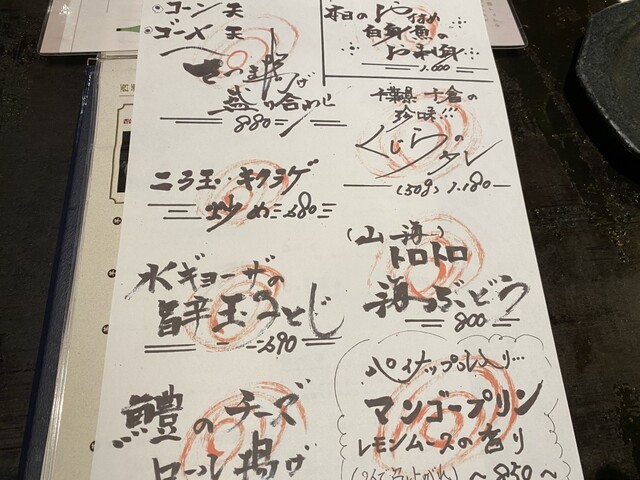 コーン天
ゴーヤ天
盛り合わせ
880
本日のお勧め
白身魚の
お刺身
1.000
千葉県 千倉の
珍味…
くじらのタレ
(50g) 1.180
ニラ玉・キクラゲ
炒め 680
水ギョーザの
旨辛玉子とじ
690
(山海)
トロトロ
海ぶどう
800
鱧のチーズ
ロール揚げ
パイナップル入り…
マンゴープリン
レモンムースの香り
~850~